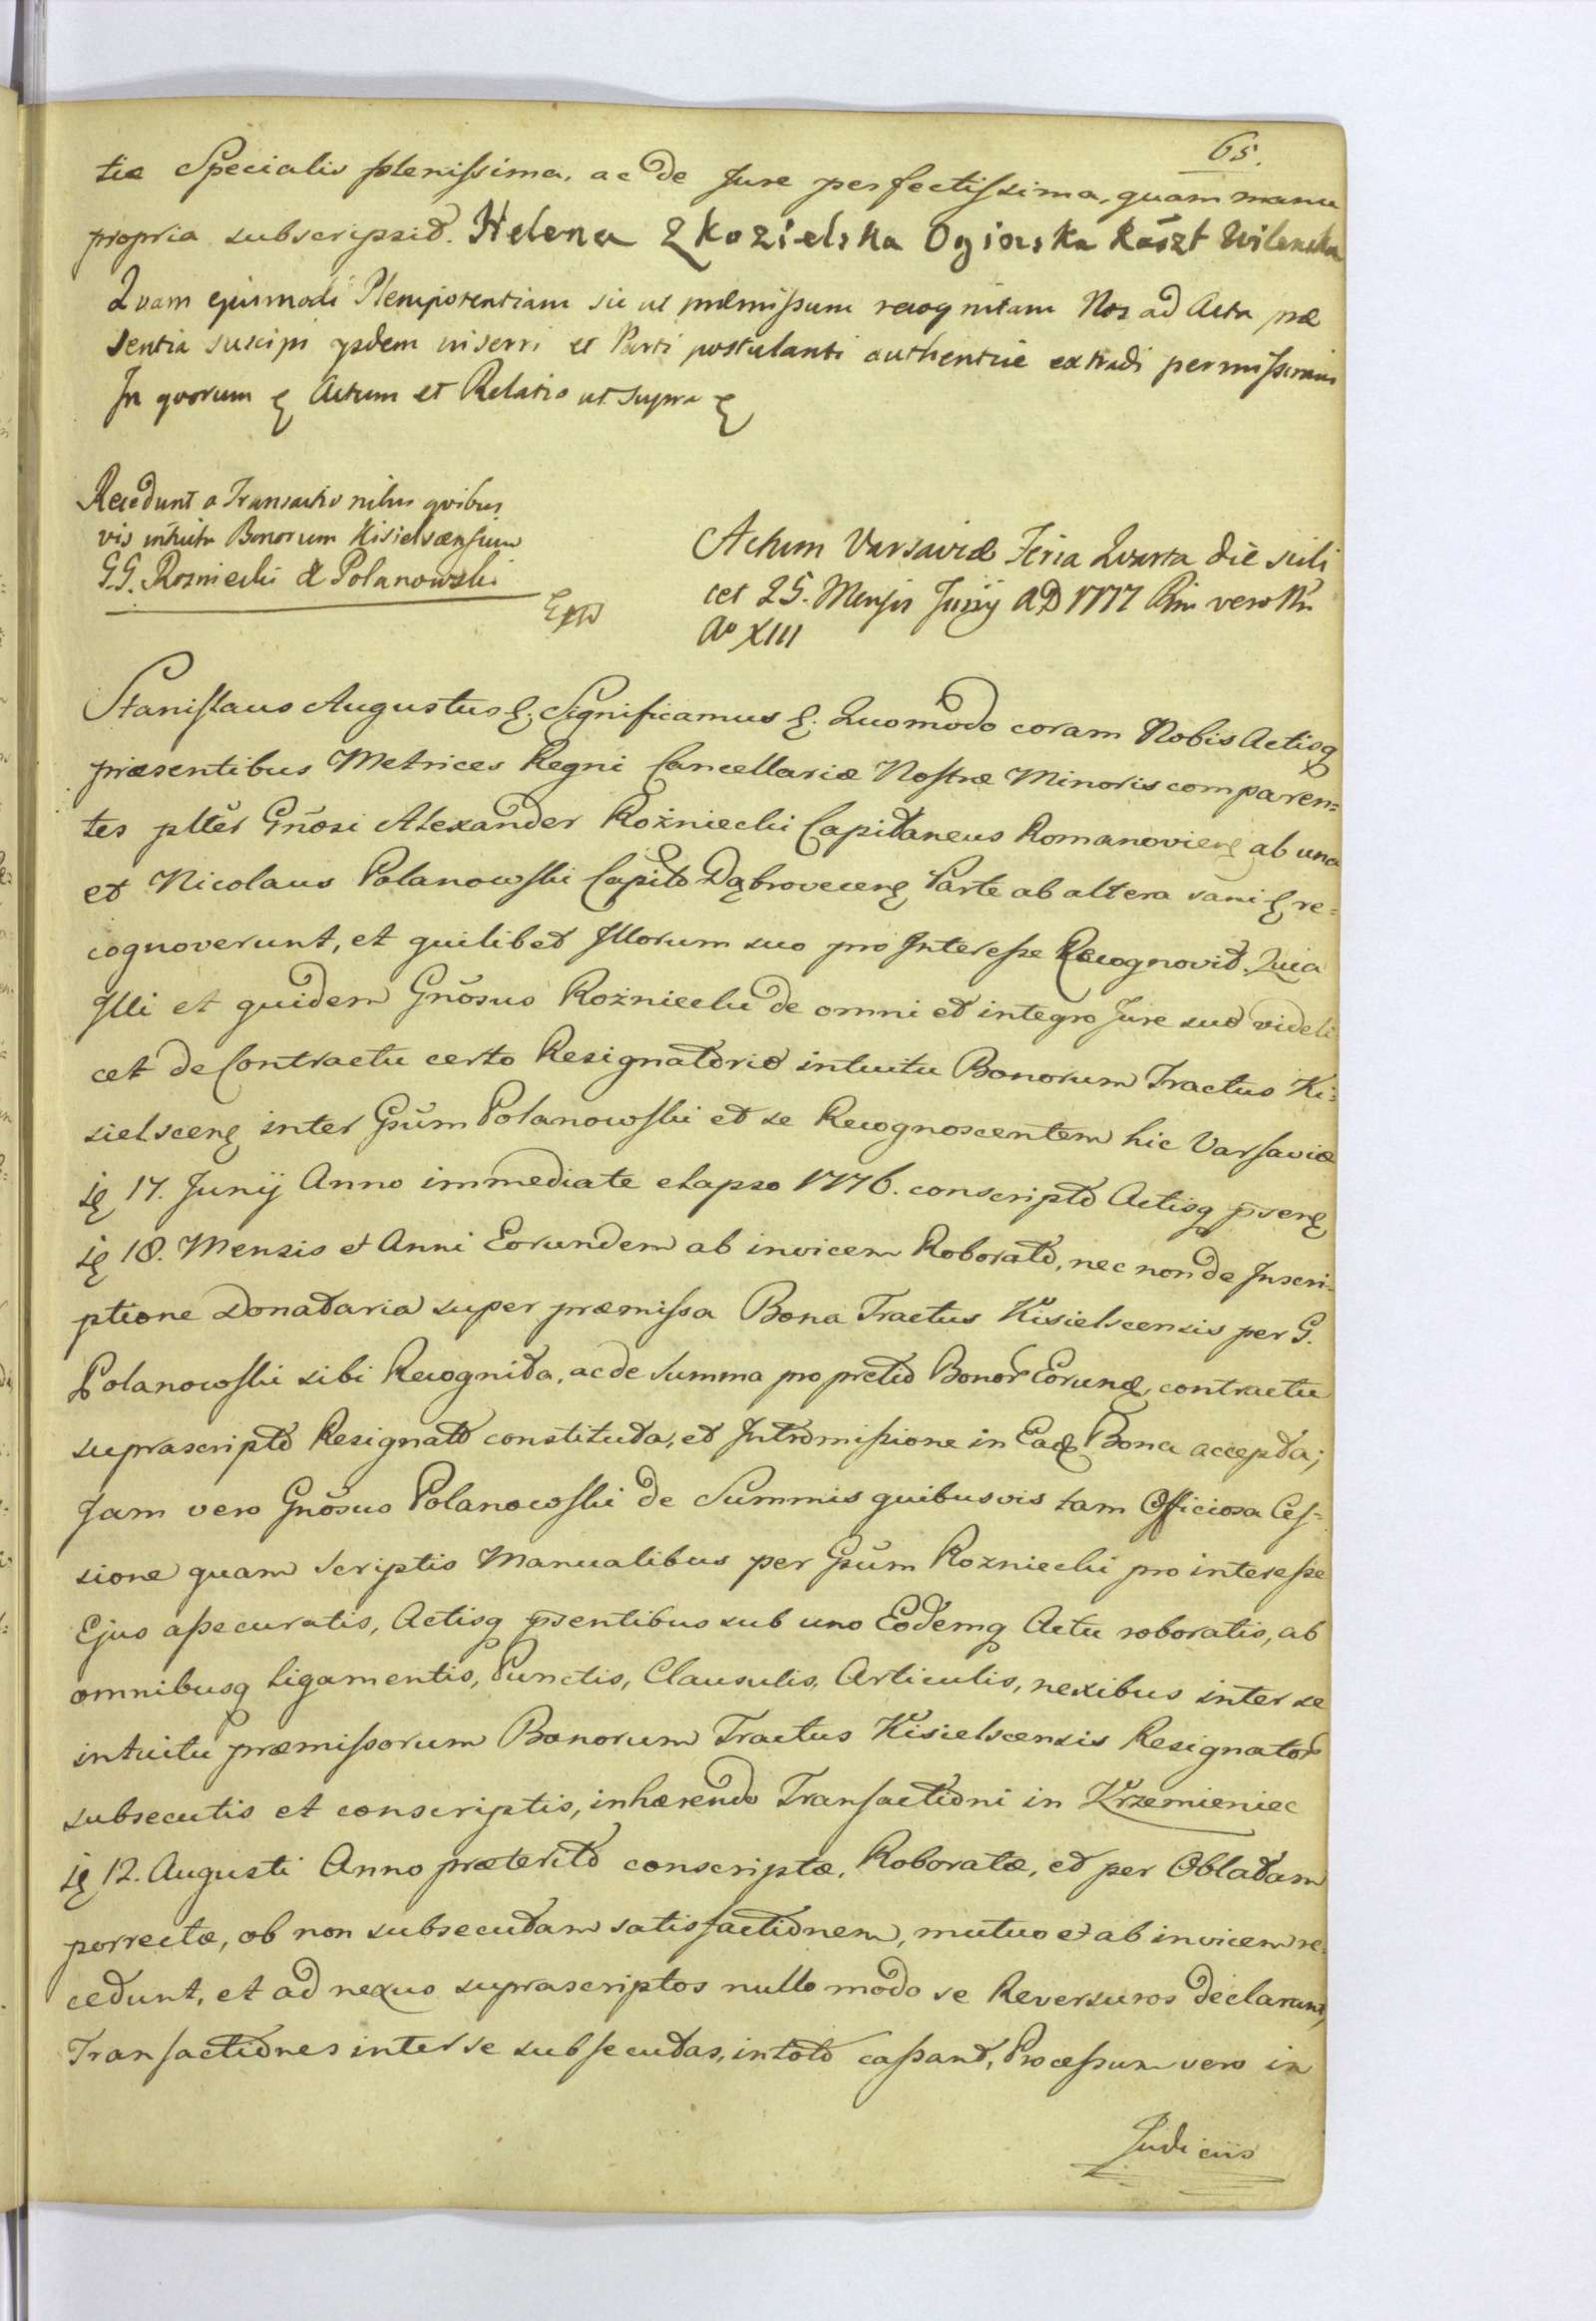 65.
tiæ Specialis plenissima, ac de Jure perfectissima, quam manu
propria subscripsit. Helena z Kozielska Oginska Kászt Wilenska
Quam ejusmodi Plenipotentiam sic ut præmissum recognitam Nos ad Acta præ
sentia suscipi ysdem inserri et Parti postulanti authentice extradi permissimus
In quorum Actum et Relatio ut supra
Recedunt a Transactionibus quibus
vis intuitu Bonorum Kisielscensium
G.G. Rozniecki & Polanowski
Actum Varsaviæ Feria Quarta die scili
cet 25. Mensis Junij AD 1777 Rni vero Nri
Ao XIII
Stanislaus Augustus &. Significamus &. Quomodo coram Nobis Actisq
præsentibus Metrices Regni Cancellariæ Nostræ Minoris comparen=
tes plter Gnosi Alexander Rożniecki Capitaneus Romanoviens ab una
et Nicolaus Polanowski Capito Dąbrovecens Parte ab altera sani & re=
cognoverunt, et quilibet Illorum suo pro Interesse Recognovit. Quia
Illi et quidem Gnosus Rożniecki de omni et integro Jure suo videli
cet de Contractu certo Resignatorio intuitu Bonorum Tractus Ki=
sielscens inter Gsum Polanowski et se Recognoscentem hic Varsaviæ
17. Junij Anno immediate elapso 1776. conscripto Actisq psens
18. Mensis et Anni Eorundem ab invicem Roborato, nec non de Inscri=
ptione Donataria super præmissa Bona Tractus Kisielscensis per G.
Polanowski sibi Recognita, ac de Summa pro pretio Bonor Eorund, contractu
suprascripto Resignato constituta, et Intromissione in Ead Bona accepta;
Jam vero Gnosus Polanowski de Summis quibusvis tam Officiosa Ces=
sione quam Scriptis Manualibus per Gsum Rozniecki pro interesse
Ejus assecuratis, Actisq psentibus sub uno Eodemq Actu roboratis, ab
omnibusq Ligamentis, Punctis, Clausulis, Articulis, nexibus inter se
intuitu præmissorum Bonorum Tractus Kisielscensis Resignator
subsecutis et conscriptis, inhærendo Transactioni in Krzemieniec
12. Augusti Anno præterito conscriptæ, Roboratæ, et per Oblatam
porrectæ, ob non subsecutam satisfactionem, mutuo et ab invicem re=
cedunt, et ad nexus suprascriptos nullo modo se Reversuros declarant,
Transactiones inter se subsecutas, in toto cassant, Processum vero in
Judiciis